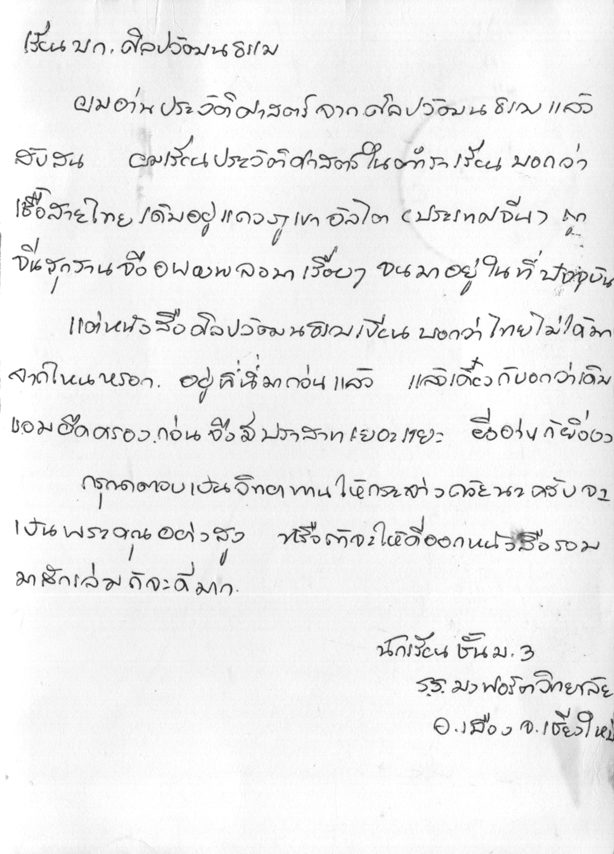 เรียน บก. ศิลปวัฒนธรรม
ผมอ่านประวัติศาสตร์จากศิลปวัฒนธรรมแล้ว
สับสน ผมเรียนประวัติศาสตร์ในตำราเรียน บอกว่า
เชื้อสายไทยเดิมอยู่แถวภูเขาอัลไต (ประเทศจีน) ถูก
จีนรุกรานจึงอพยพลงมาเรื่อยๆ จนมาอยู่ในที่ปัจจุบัน
แต่หนังสือศิลปวัฒนธรรมเขียนบอกว่าไทยไม่ได้มา
จากไหนหรอก. อยู่ที่นี่มาก่อนแล้ว แล้วเดี๋ยวก็บอกว่าเดิม
ขอมยึดครองก่อนจึงมีปราสาทเยอะแยะ ยิ่งอ่านก็ยิ่งงง
กรุณาตอบเป็นวิทยาทานให้กระจ่างด้วยนะครับจะ
เป็นพระคุณอย่างสูง หรือถ้าจะให้ดีออกหนังสือรวม
มาสักเล่มก็จะดีมาก.
นักเรียนชั้น ม. 3
ร.ร. มงฟอร์ตวิทยาลัย
อ.เมือง จ.เชียงใหม่